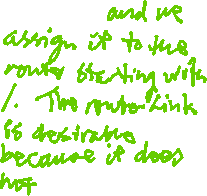 and we
assign it to the
router starting with
1. The router link
is desirable
because it does
not